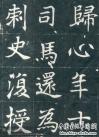 歸心年
司馬還為
刺史復授